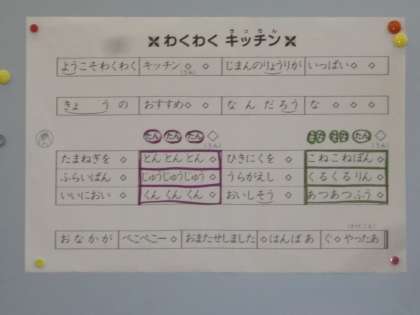 わくわく キッチン
ようこそわくわく キッチン◇ ◇ じまんのりょうりが いっぱい◇ ◇
(うん)
きょうの おすすめ◇ ◇ なんだろう な◇ ◇ ◇
たん たん たん ◇ たん ◇
(うん) (うん)
たまねぎを ◇ とん とん とん ◇ ひきにくを ◇ こねこねぽん ◇
ふらいぱん ◇ じゅうじゅうじゅう ◇ うらがえし ◇ くるくるりん ◇
いいにおい ◇ くん くん くん ◇ おいしそう ◇ あつあつふう ◇
おなかが ぺこぺこー◇ おまたせしました ◇はんばあ ぐ◇やったあ